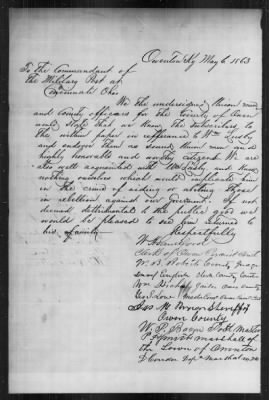 Owenton Ky May 6 1863
To the Commandant of
the Military Post at
Cincinnati Ohio
We the undersigned Union men
and County officers for the County of Owen
would State that we know the subscribers to
the within paper in refference to Wm Lusby
and endorse them as sound Union men and
highly honorable and worthy citizens. We are
also well acquainted with Wm Lusby and know
nothing ourselves which would implicate him
in the crime of aiding or abetting those
in rebellion against our Government. If not
deemed detrimental to the public good we
would be pleased to see him returned to
his family
Respectfully
Clerk of Owen Circuit Court
County Judge
Clerk County Court
Jailor Owen County
Sheriff
Owen County
W. P. Post Master
marshall of
the Town of Owenton